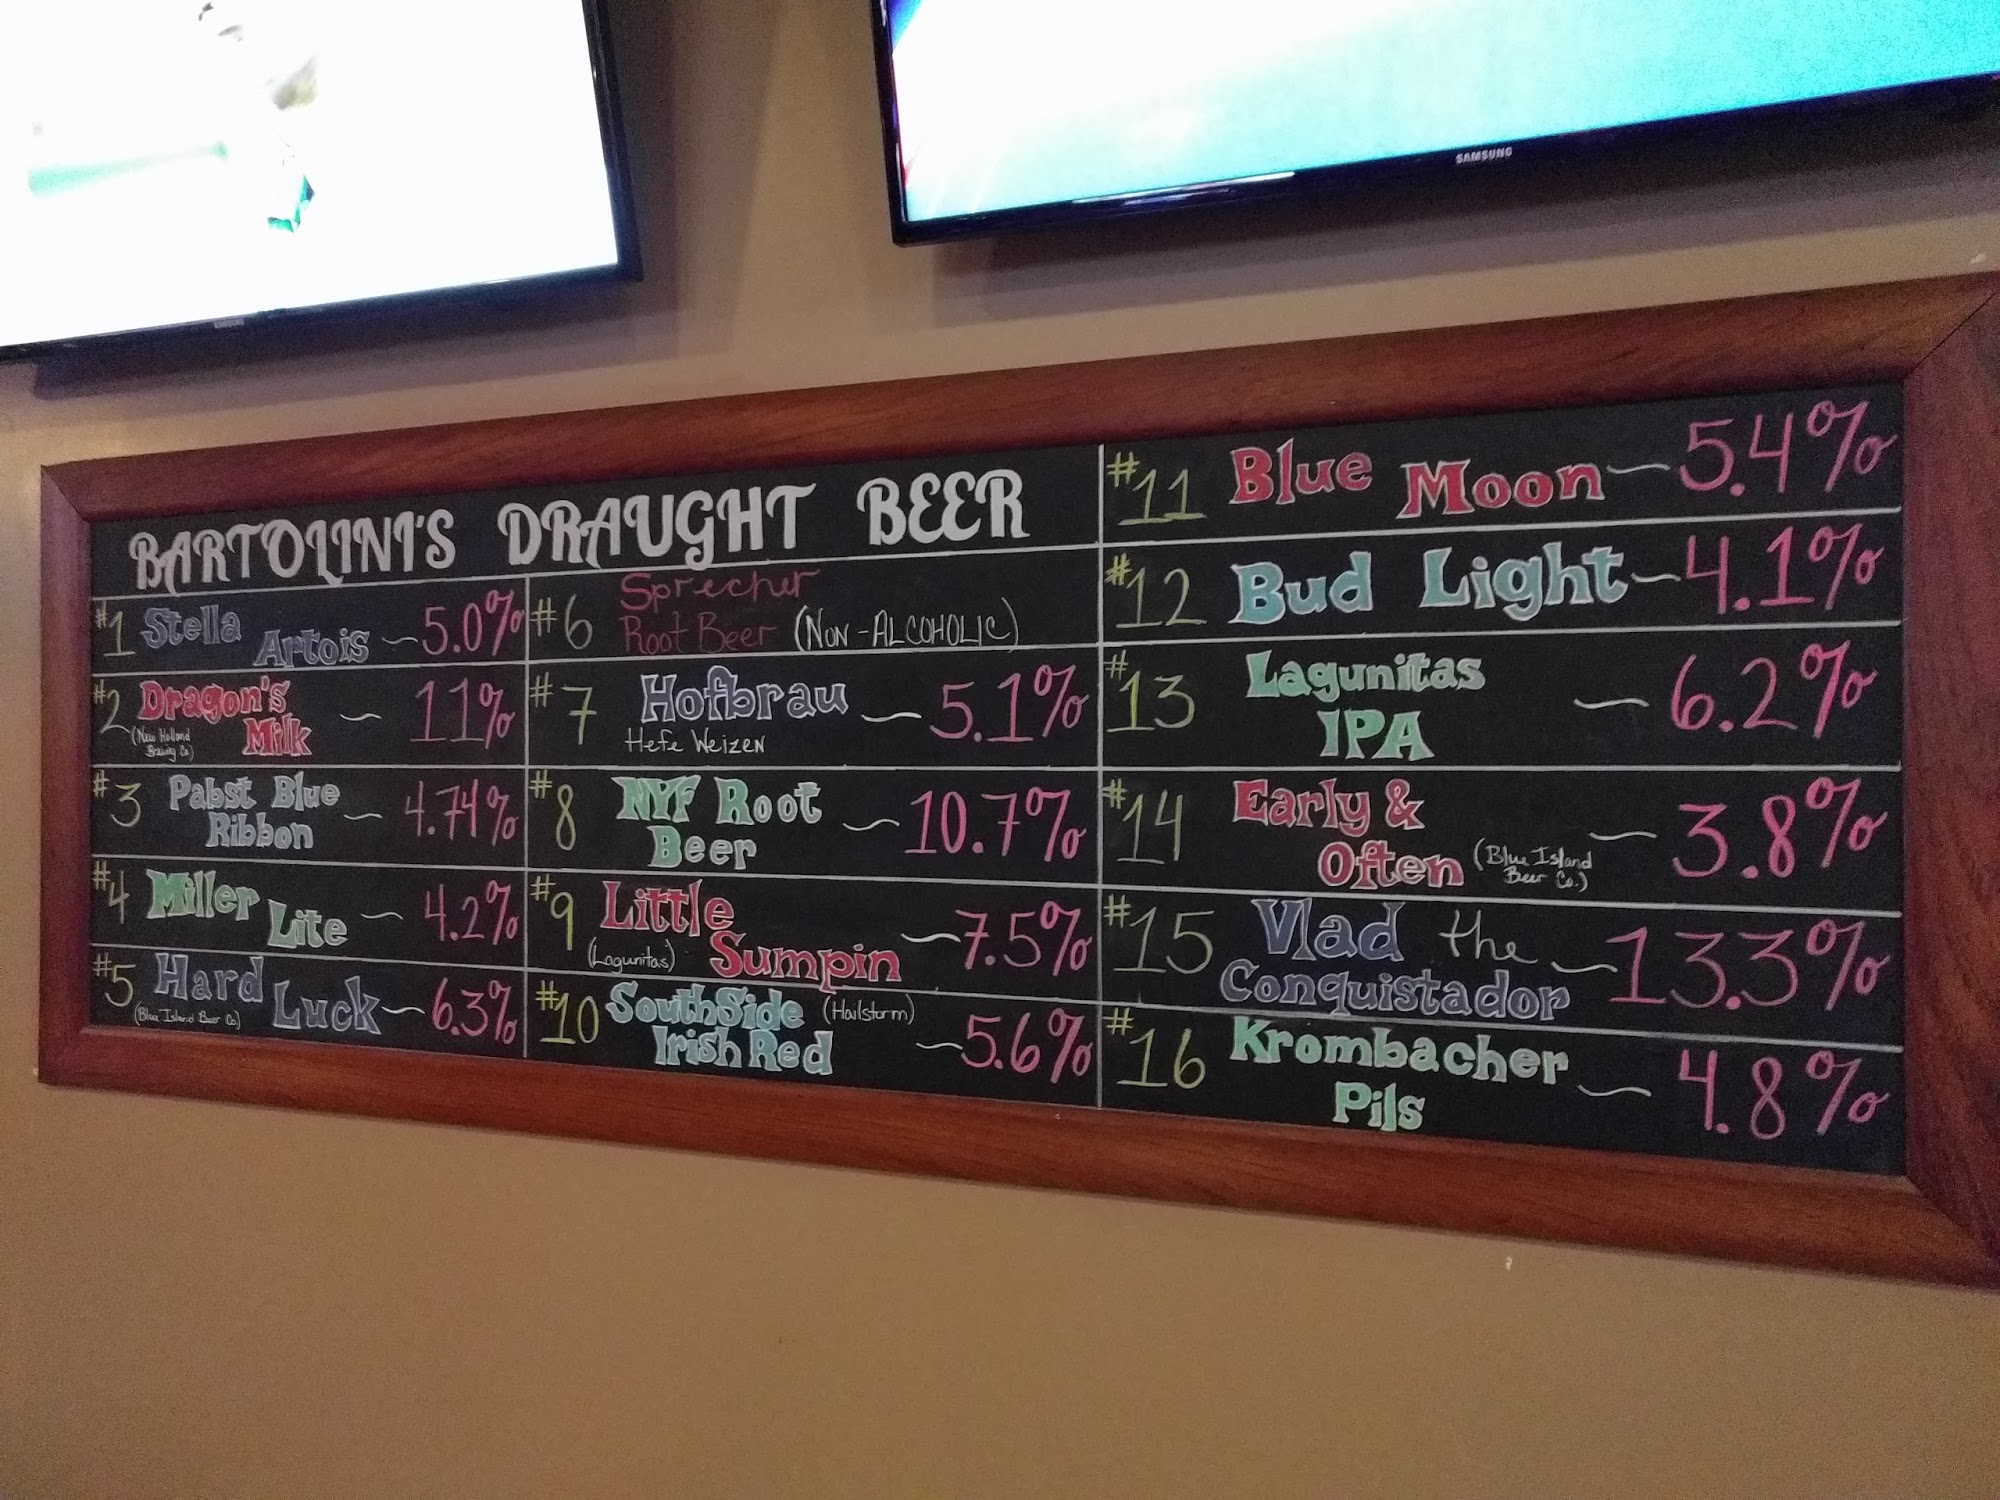 SAMSUNG
SAMSUNG
BARTOLINI'S DRAUGHT BEER
#1 Stella Artois ~ 5.0%
#2 Dragon's Milk ~ 11%
(New Holland
Brewing Co)
#3 Pabst Blue
Ribbon ~ 4.74%
#4 Miller Lite ~ 4.2%
#5 Hard Luck ~ 6.3%
(Blue Island Beer Co)
#6 Sprecher
Root Beer (NON-ALCOHOLIC)
#7 Hofbrau ~ 5.1%
Hefe Weizen
#8 NYF Root
Beer ~ 10.7%
#9 Little
(Lagunitas) Sumpin ~ 7.5%
#10 SouthSide (Hailstorm)
Irish Red ~ 5.6%
#11 Blue Moon ~ 5.4%
#12 Bud Light ~ 4.1%
#13 Lagunitas
IPA ~ 6.2%
#14 Early &
Often (Blue Island
Beer Co.) ~ 3.8%
#15 Vlad the
Conquistador ~ 13.3%
#16 Krombacher
Pils ~ 4.8%